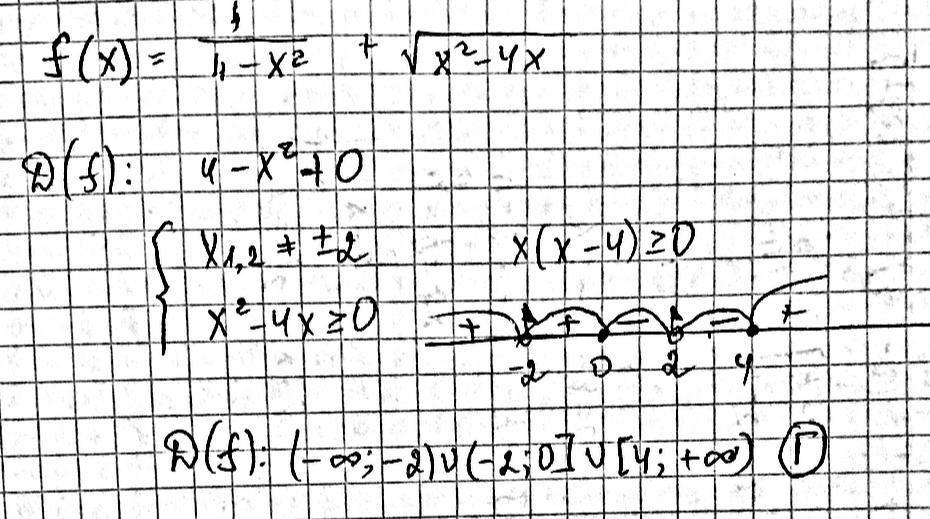 f(x) = 1/(4-x²) + √(x²-4x)
D(f): 4-x²≠0
{ x₁,₂ ≠ ±2 x(x-4)≥0
x²-4x≥0 + + − − +
-2 0 2 4
D(f): (-∞; -2)∪(-2; 0]∪[4; +∞) Г